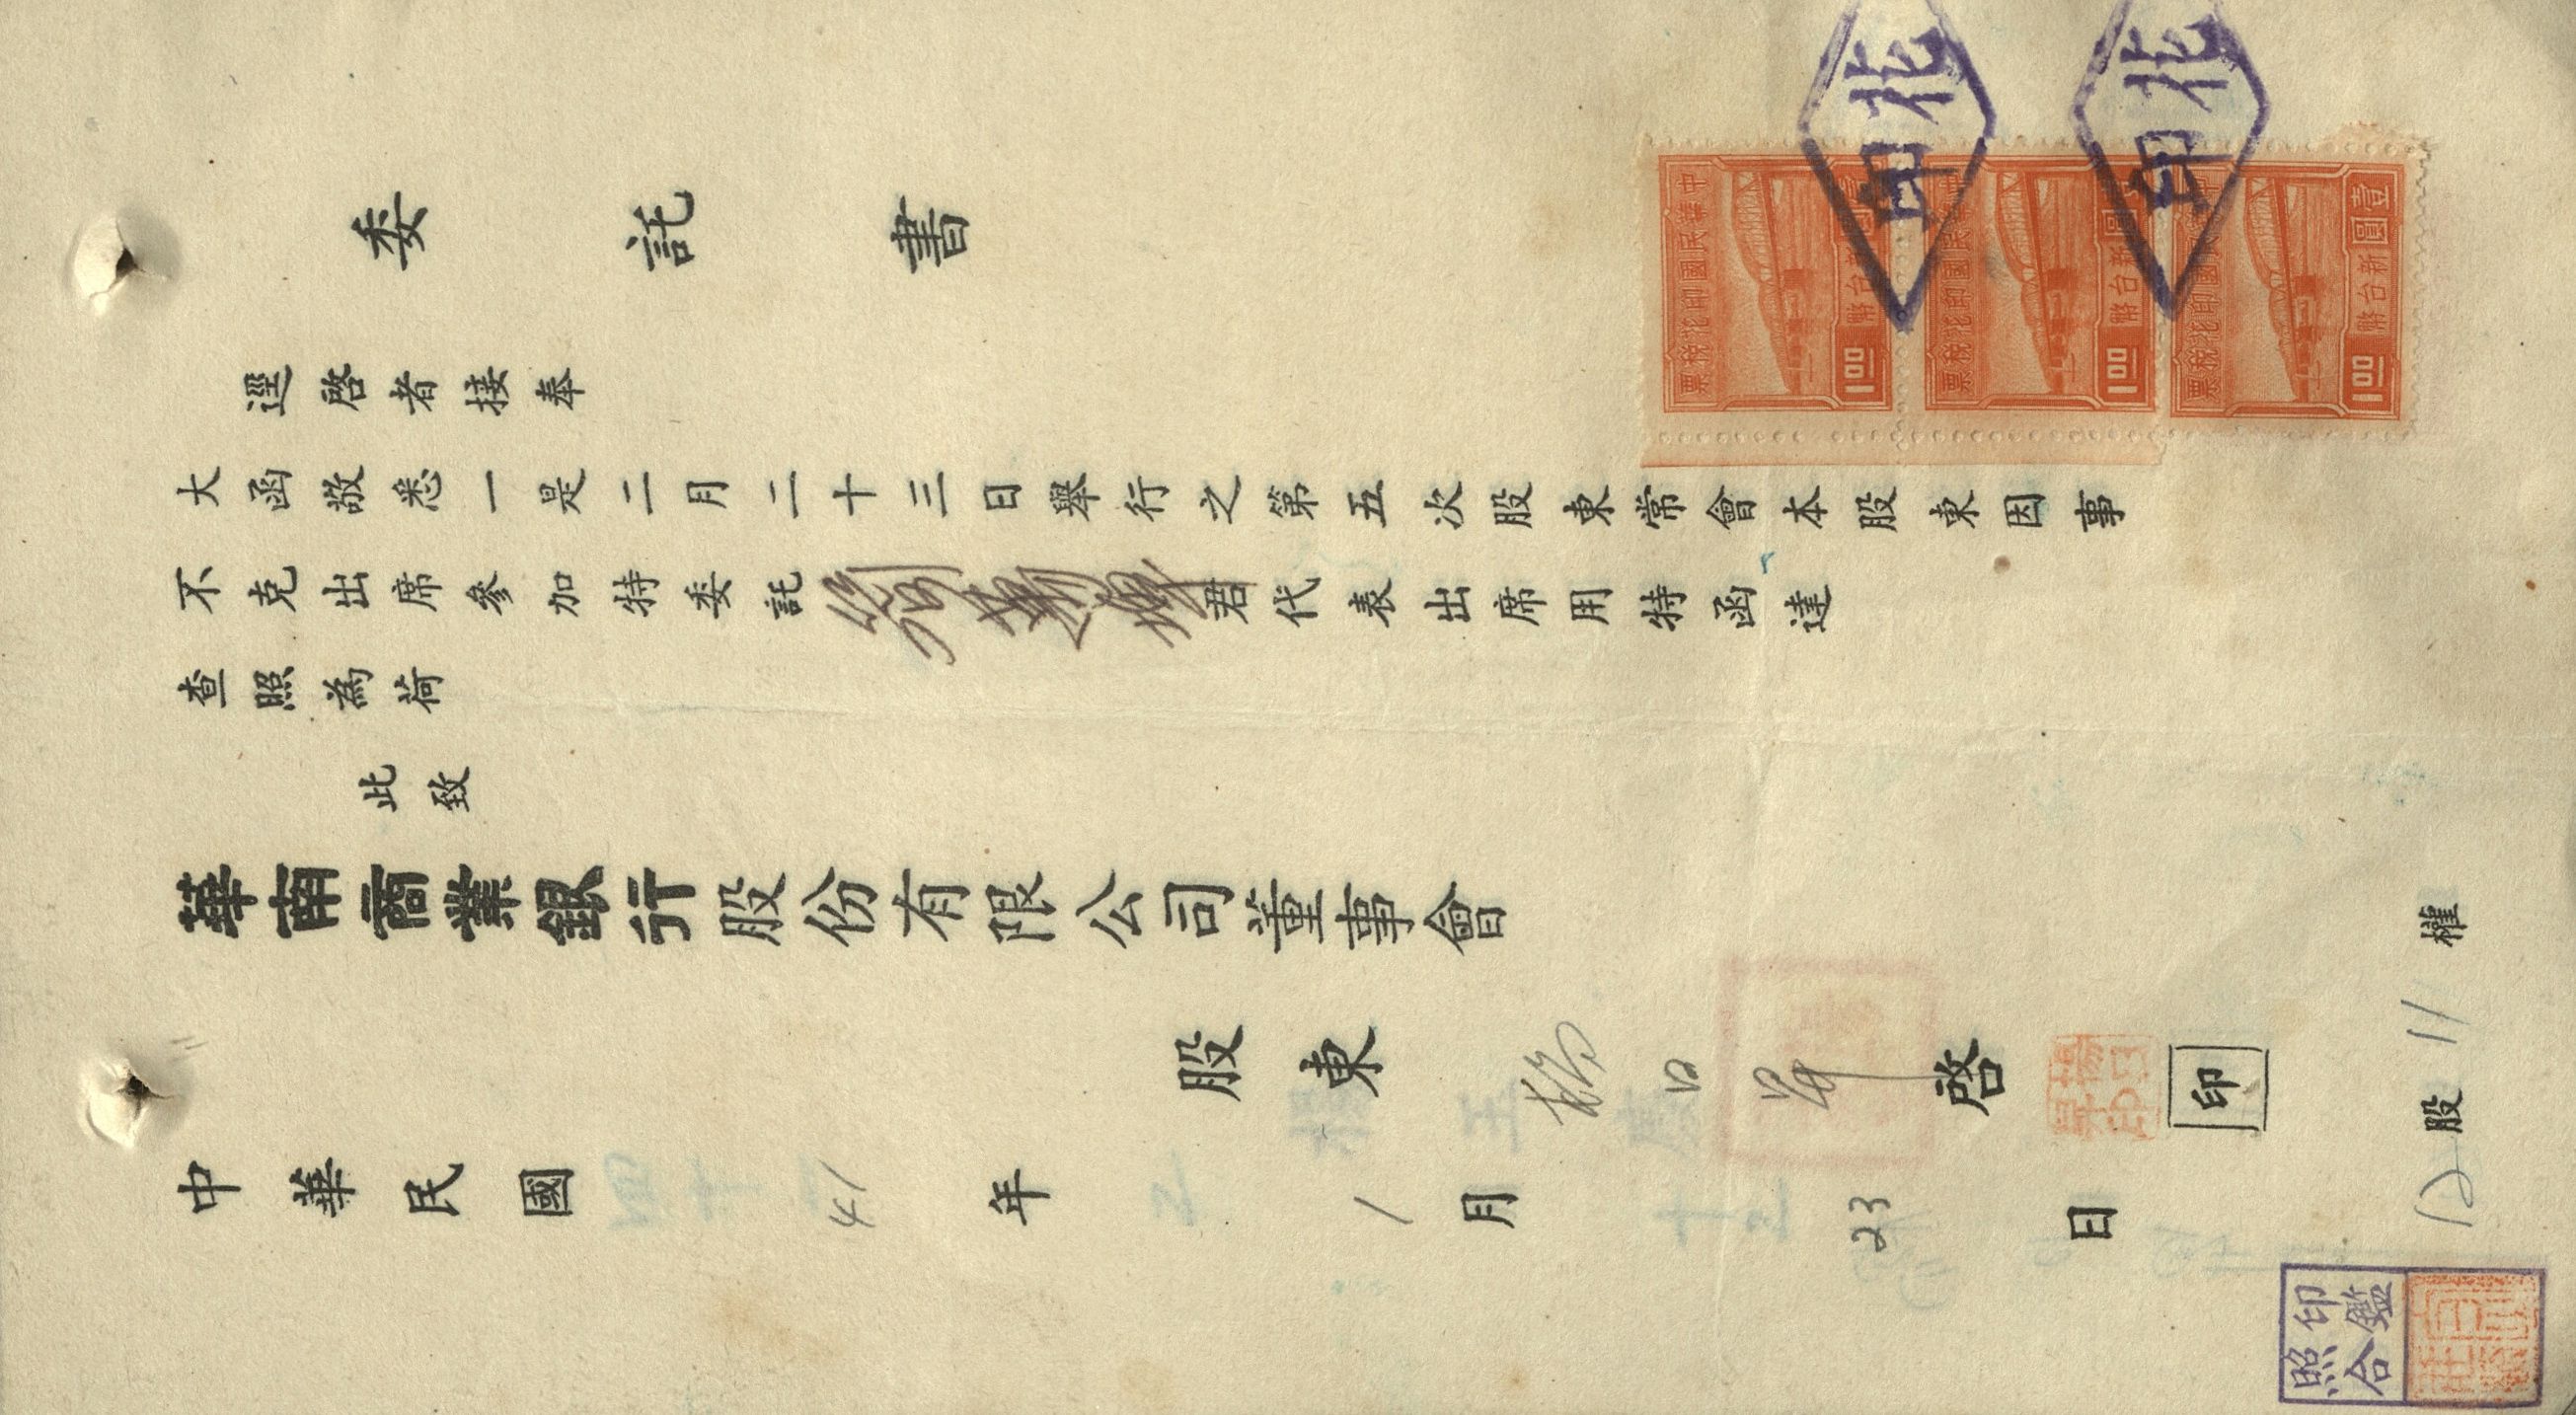 委託書
逕啓者接奉
大函敬悉一是二月二十三日舉行之第五次股東常會本股東因事
不克出席參加特委託
君代表出席用特函達
查照為荷
此致
華南商業銀行股份有限公司董事會
股東
啓
印
中華民國 41 年 1 月 23 日
12 股 11 權
中華民國印花稅票
壹圓
新台幣
1.00
中華民國印花稅票
新台幣
1.00
印花稅票
壹圓
新台幣
1.00
花印
花印
印鑑
照合